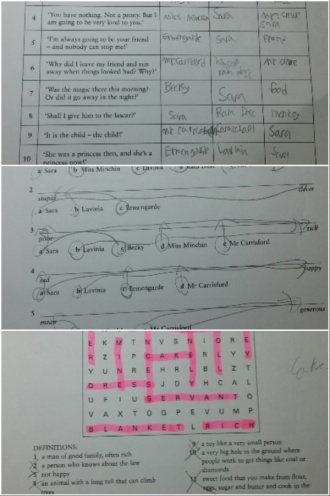 4 'You have nothing. Not a penny. But I am going to be very kind to you.' Sara
5 'I'm always going to be your friend – and nobody can stop me!' Ermengarde Sara
6 'Why did I leave my friend and run away when things looked bad? Why?'
7 'Was the magic there this morning? Or did it go away in the night?' Becky Sara food
8 'Shall I give him to the lascar?' Sara Ram Dass monkey
9 'It is the child – the child!' Sara
10 'She was a princess then, and she's a princess now!' Ermengarde Lavinia Sara
a Sara b Miss Minchin c Lavinia
2
stupid clever
a Sara b Lavinia c Ermengarde
3
poor rich
a Sara b Lavinia c Becky d Miss Minchin e Mr Carrisford
4
sad happy
a Sara b Lavinia c Ermengarde d Mr Carrisford
5
mean generous
Mr Carrisford
E K M T N V S N I O R E
R Z I P C A K E R L Y Y
Y U N R E H R L B I Z T
D R E S S J D Y H C A L
U F I U S E R V A N T O
V A X T O G P E V U M P
B L A N K E T L R I C H
DEFINITIONS:
1 a man of good family, often rich
2 a person who knows about the law
not happy
an animal with a long tail that can climb trees
a toy like a very small person
a very big hole in the ground where people work to get things like coal or diamonds
sweet food that you make from flour, eggs, sugar and butter and cook in the